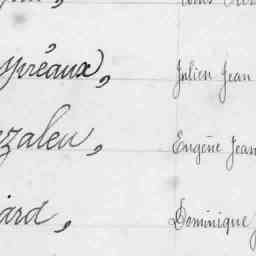 spréaux, Julien Jean
zaleu, Eugène Jean
ard, Dominique